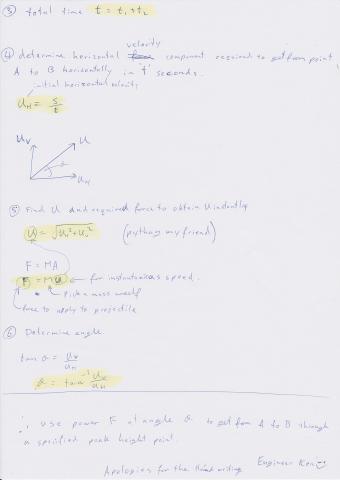 ③ total time t = t₁ + t₂
④ determine horizontal velocity component required to get from point
A to B horizontally in 't' seconds.
initial horizontal velocity
U_H = s/t
U_V U
θ
U_H
⑤ Find U and required force to obtain U instantly
U = √(U_H² + U_V²) (pythag my friend)
F = MA
F = MU ← for instantaneous speed.
Pick a mass
force to apply to projectile
⑥ Determine angle
tan θ = U_V/U_H
θ = tan⁻¹ U_V/U_H
∴ use power F at angle θ to get from A to B through
a specified peak height point.
Engineer Ken
Apologies for the hand writing